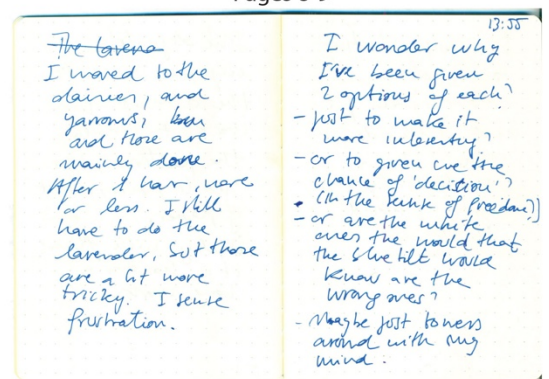 Pages 8-9
The lavena
I moved to the
dairies, and
yarrows,
and those are
mainly done.
After 1 hour, more
or less. I still
have to do the
lavender, but those
are a bit more
tricky. I sense
frustration.
13:55
I wonder why
I've been given
2 options of each?
- just to make it
more interesting?
- or to given me the
chance of 'decition'?
(in the sense of freedom?)]
- or are the white
ones the would that
the would
know are the
wrong ones?
- Maybe just to mess
around with my
mind.